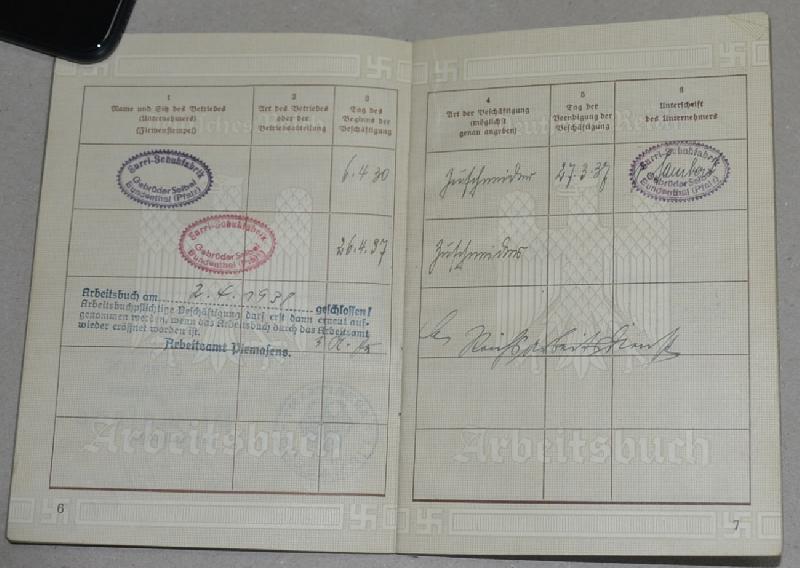 1
Name und Sitz des Betriebes
(Unternehmers)
(Firmenstempel)
2
Art des Betriebes
oder der
Betriebsabteilung
3
Tag des
Beginns der
Beschäftigung
Sarri-Schuhfabrik
Gebrüder Seibel
Bundenthal (Pfalz)
6.4.30
Sarri-Schuhfabrik
Gebrüder Seibel
Bundenthal (Pfalz)
26.4.37
Arbeitsbuch am 2.4.193 geschlossen!
Arbeitsbuchpflichtige Beschäftigung darf erst dann erneut auf-
genommen werden, wenn das Arbeitsbuch durch das Arbeitsamt
wieder eröffnet worden ist.
Arbeitsamt Pirmasens.
Arbeitsbuch
6
4
Art der Beschäftigung
(möglichst
genau angeben)
5
Tag der
Beendigung der
Beschäftigung
6
Unterschrift
des Unternehmers
Zuschneider
27.3.37
Sarri-Schuhfabrik
Gebrüder Seibel
Bundenthal (Pfalz)
Zuschneider
Reichsarbeitsdienst
Arbeitsbuch
7